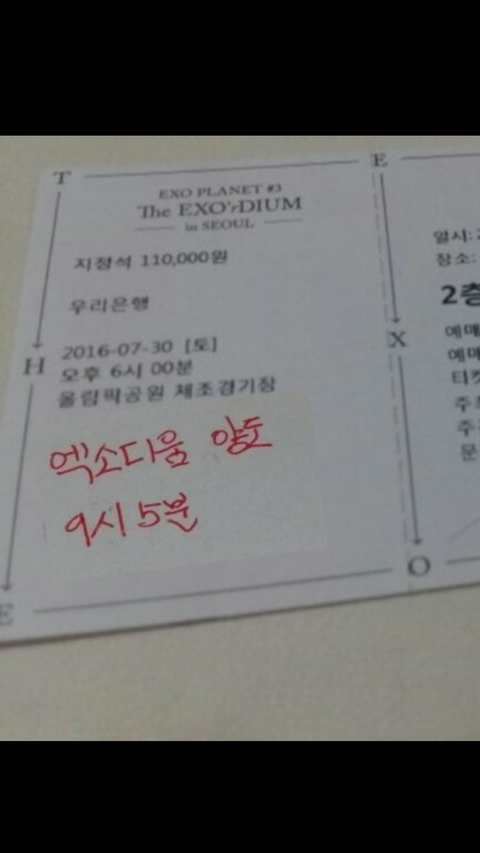 T
E
EXO PLANET #3
The EXO'rDIUM
in SEOUL
지정석 110,000원
우리은행
H
2016-07-30 [토]
오후 6시 00분
올림픽공원 체조경기장
엑소디움 양도
9시 5분
E
일시:
장소:
2층
X
예매
예매
티켓
주최
주관
문
O